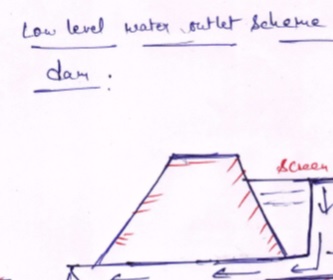 Low level water outlet scheme
dam :
Screen